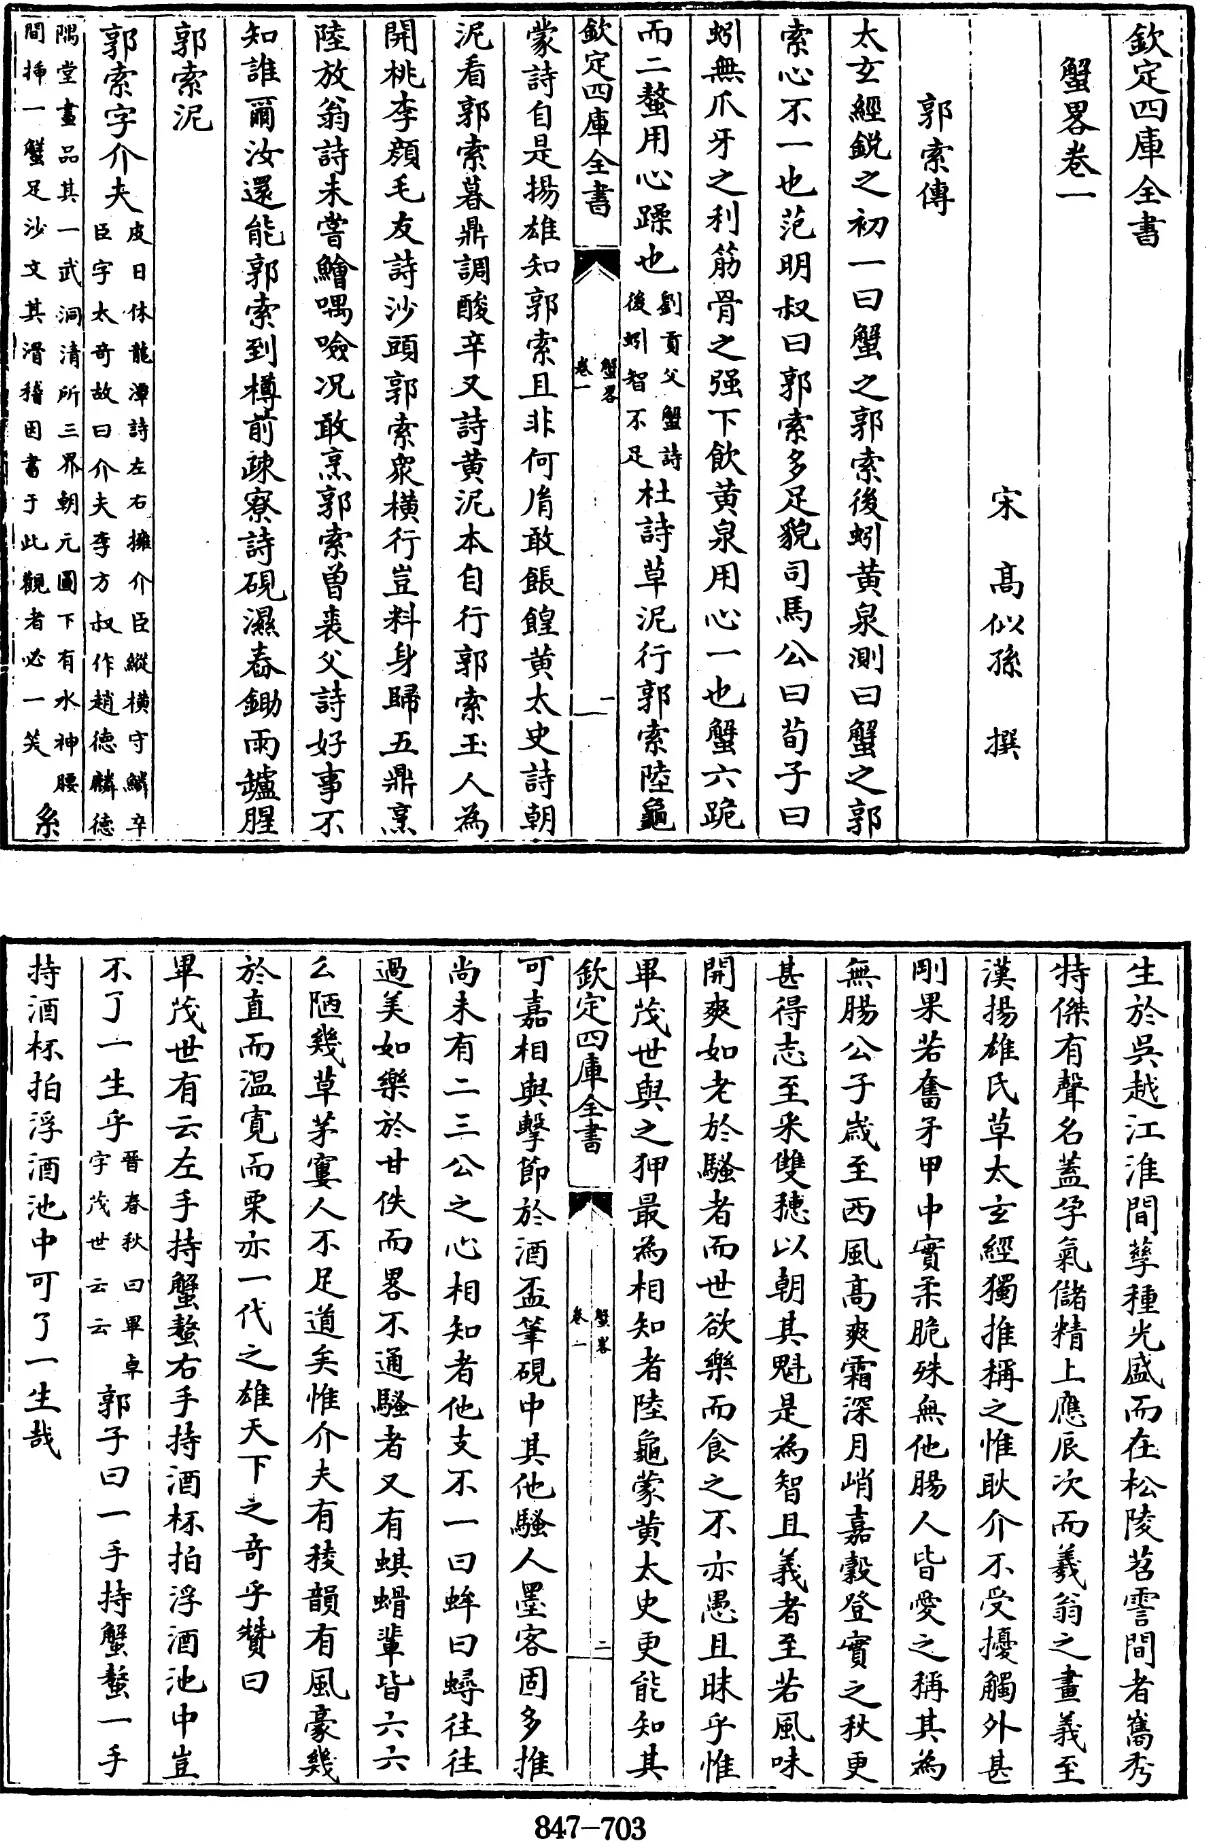 欽定四庫全書
蟹畧卷一
宋　高似孫　撰
郭索傳
太玄經銳之初一曰蟹之郭索後蚓黄泉測曰蟹之郭
索心不一也范明叔曰郭索多足貌司馬公曰荀子曰
蚓無爪牙之利筋骨之强下飲黄泉用心一也蟹六跪
而二螯用心躁也劉貢父蟹詩後蚓智不足杜詩草泥行郭索陸龜
欽定四庫全書
蟹畧
卷一
一
蒙詩自是揚雄知郭索且非何胤敢餦餭黄太史詩朝
泥看郭索暮鼎調酸辛又詩黄泥本自行郭索玉人為
開桃李顔毛友詩沙頭郭索衆横行豈料身歸五鼎烹
陸放翁詩未嘗鱠喁噞况敢烹郭索曾裘父詩好事不
知誰爾汝還能郭索到樽前疎寮詩硯濕舂鋤雨鑪腥
郭索泥
郭索字介夫皮日休龍潭詩左右擁介臣縱横守鱗卒
臣字太奇故曰介夫李方叔作趙德麟德
隅堂畫品其一武洞清所三界朝元圖下有水神腰
間揷一蟹足沙文其滑稽因書于此觀者必一笑系
生於吳越江淮間孳種光盛而在松陵苕霅間者舊秀
特傑有聲名蓋孕氣儲精上應辰次而羲翁之畫義至
漢揚雄氏草太玄經獨推稱之惟耿介不受擾觸外甚
剛果若奮矛甲中實柔脆殊無他腸人皆愛之稱其為
無腸公子歲至西風高爽霜深月峭嘉穀登實之秋更
甚得志至采雙穗以朝其魁是為智且義者至若風味
開爽如老於騷者而世欲樂而食之不亦愚且昧乎惟
畢茂世與之狎最為相知者陸龜蒙黄太史更能知其
欽定四庫全書
蟹畧
卷一
二
可嘉相與擊節於酒盃筆硯中其他騷人墨客固多推
尚未有二三公之心相知者他支不一曰蛑曰蟳往往
過美如樂於甘佚而畧不通騷者又有蜞蝟輩皆六六
么陋幾草茅窶人不足道矣惟介夫有稜韻有風豪幾
於直而温寛而栗亦一代之雄天下之奇乎贊曰
畢茂世有云左手持蟹螯右手持酒杯拍浮酒池中豈
不了一生乎晉春秋曰畢卓字茂世云云郭子曰一手持蟹螯一手
持酒杯拍浮酒池中可了一生哉
847-703